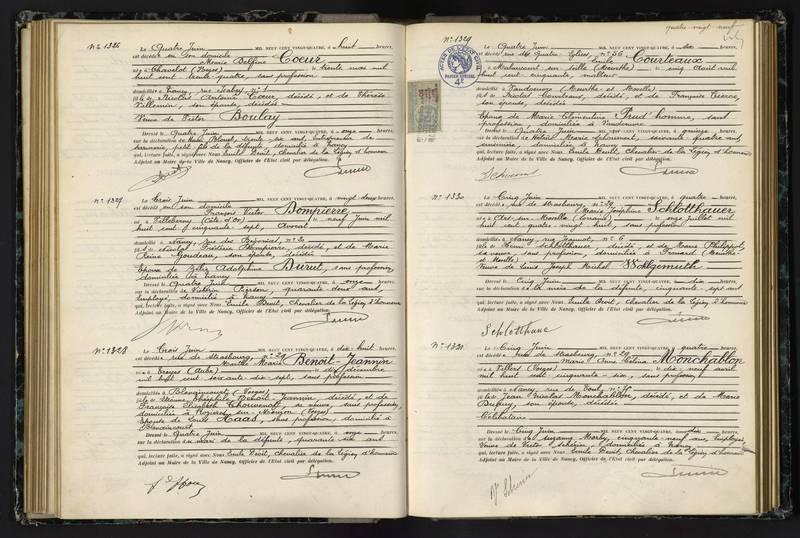 No 1326
Le Quatre Juin MIL NEUF CENT VINGT-QUATRE, à huit heures,
est décédée en son domicile
Marie Delphine Coeur
née à Chavelot (Vosges) le trente mai mil
huit cent trente quatre, sans profession
domiciliée à Nancy, rue
fille de Nicolas Antoine Coeur, décédé, et de Thérèse
Villemin, son épouse, décédée
Veuve de Victor Boulay
Dressé le Quatre Juin MIL NEUF CENT VINGT-QUATRE, à onze heures,
sur la déclaration de Henri
petit fils de la défunte, domicilié à Nancy
qui, lecture faite, a signé avec Nous Emile Devit, Chevalier de la Légion d'honneur
Adjoint au Maire de la Ville de Nancy, Officier de l'Etat civil par délégation.
No 1327
Le Trois Juin MIL NEUF CENT VINGT-QUATRE, à vingt deux heures,
est décédé en son domicile
François Victor Bompierre
né à Villeberny (Côte d'Or) le neuf Juin mil
huit cent cinquante sept, Avocat
domicilié à Nancy, rue des Bégonias, no 20
fils de Nicolas Frédéric Bompierre, décédé, et de Marie
Reine Goudeau, son épouse, décédée
Epoux de Zélie Adolphine Burut, sans profession,
domiciliée à Nancy
Dressé le Quatre Juin MIL NEUF CENT VINGT-QUATRE, à onze heures,
sur la déclaration de Victorin Pierson, quarante deux ans,
Employé, domicilié à Nancy
qui, lecture faite, a signé avec Nous Emile Devit, Chevalier de la Légion d'honneur
Adjoint au Maire de la Ville de Nancy, Officier de l'Etat civil par délégation.
No 1328
Le Trois Juin MIL NEUF CENT VINGT-QUATRE, à dix huit heures,
est décédée rue de Strasbourg, no 29
Marthe Marie Benoit-Jeannin
née à Troyes (Aube) le dix décembre
mil huit cent soixante dix sept, sans profession
domiciliée à
fille de Etienne Théophile Benoit Jeannin, décédé, et de
Françoise Elisabeth sa veuve, sans profession,
domiciliée à (Vosges)
Epouse de Louis Haas, sans profession, domicilié à
Dressé le Quatre Juin MIL NEUF CENT VINGT-QUATRE, à onze heures,
sur la déclaration du mari de la défunte, quarante six ans
qui, lecture faite, a signé avec Nous Emile Devit, Chevalier de la Légion d'honneur
Adjoint au Maire de la Ville de Nancy, Officier de l'Etat civil par délégation.
quatre-vingt neuf
No 1329
Le Quatre Juin MIL NEUF CENT VINGT-QUATRE, à dix heures,
est décédé rue des Quatre Eglises, no 56
Emile Courteaux
né à (Meurthe) le cinq Août mil
huit cent cinquante,
domicilié à Vandoeuvre (Meurthe et Moselle)
fils de Nicolas Courteaux, décédé, et de Françoise Pierre,
son épouse, décédée
Epoux de Marie Clémentine Prud'homme, sans
profession, domiciliée à Vandoeuvre
Dressé le Quatre Juin MIL NEUF CENT VINGT-QUATRE, à quinze heures,
sur la déclaration de Marie soixante quatre ans
domiciliée à Nancy
qui, lecture faite, a signé avec Nous Emile Devit, Chevalier de la Légion d'honneur
Adjoint au Maire de la Ville de Nancy, Officier de l'Etat civil par délégation.
No 1330
Le Cinq Juin MIL NEUF CENT VINGT-QUATRE, à quatre heures,
est décédée rue de Strasbourg, no 29
Marie Joséphine Schlotthauer
née à Ars-sur-Moselle (Lorraine) le onze Juillet mil
huit cent quatre-vingt huit, sans profession
domiciliée à Nancy, rue Jeannot, no 6
fille de Henri Schlotthauer, décédé, et de Marie Philippot,
sa veuve, sans profession, domiciliée à Frouard (Meurthe
et Moselle)
Veuve de Louis Joseph Michel Wohlgemuth
Dressé le Cinq Juin MIL NEUF CENT VINGT-QUATRE, à dix heures,
sur la déclaration de la mère de la défunte, cinquante sept ans
qui, lecture faite, a signé avec Nous Emile Devit, Chevalier de la Légion d'honneur
Adjoint au Maire de la Ville de Nancy, Officier de l'Etat civil par délégation.
No 1331
Le Cinq Juin MIL NEUF CENT VINGT-QUATRE, à quatre heures,
est décédée rue de Strasbourg, no 29
Marie Anne Monchablon
née à Villers (Vosges) le dix-neuf Avril
mil huit cent cinquante-six, sans profession
domiciliée à Nancy, rue de Toul, no
fille de Jean Nicolas Monchablon, décédé, et de Marie
son épouse, décédée
Célibataire
Dressé le Cinq Juin MIL NEUF CENT VINGT-QUATRE, à dix heures,
sur la déclaration de Suzanne cinquante neuf ans, Employée,
Veuve de Victor domiciliée à Nancy
qui, lecture faite, a signé avec Nous Emile Devit, Chevalier de la Légion d'honneur
Adjoint au Maire de la Ville de Nancy, Officier de l'Etat civil par délégation.